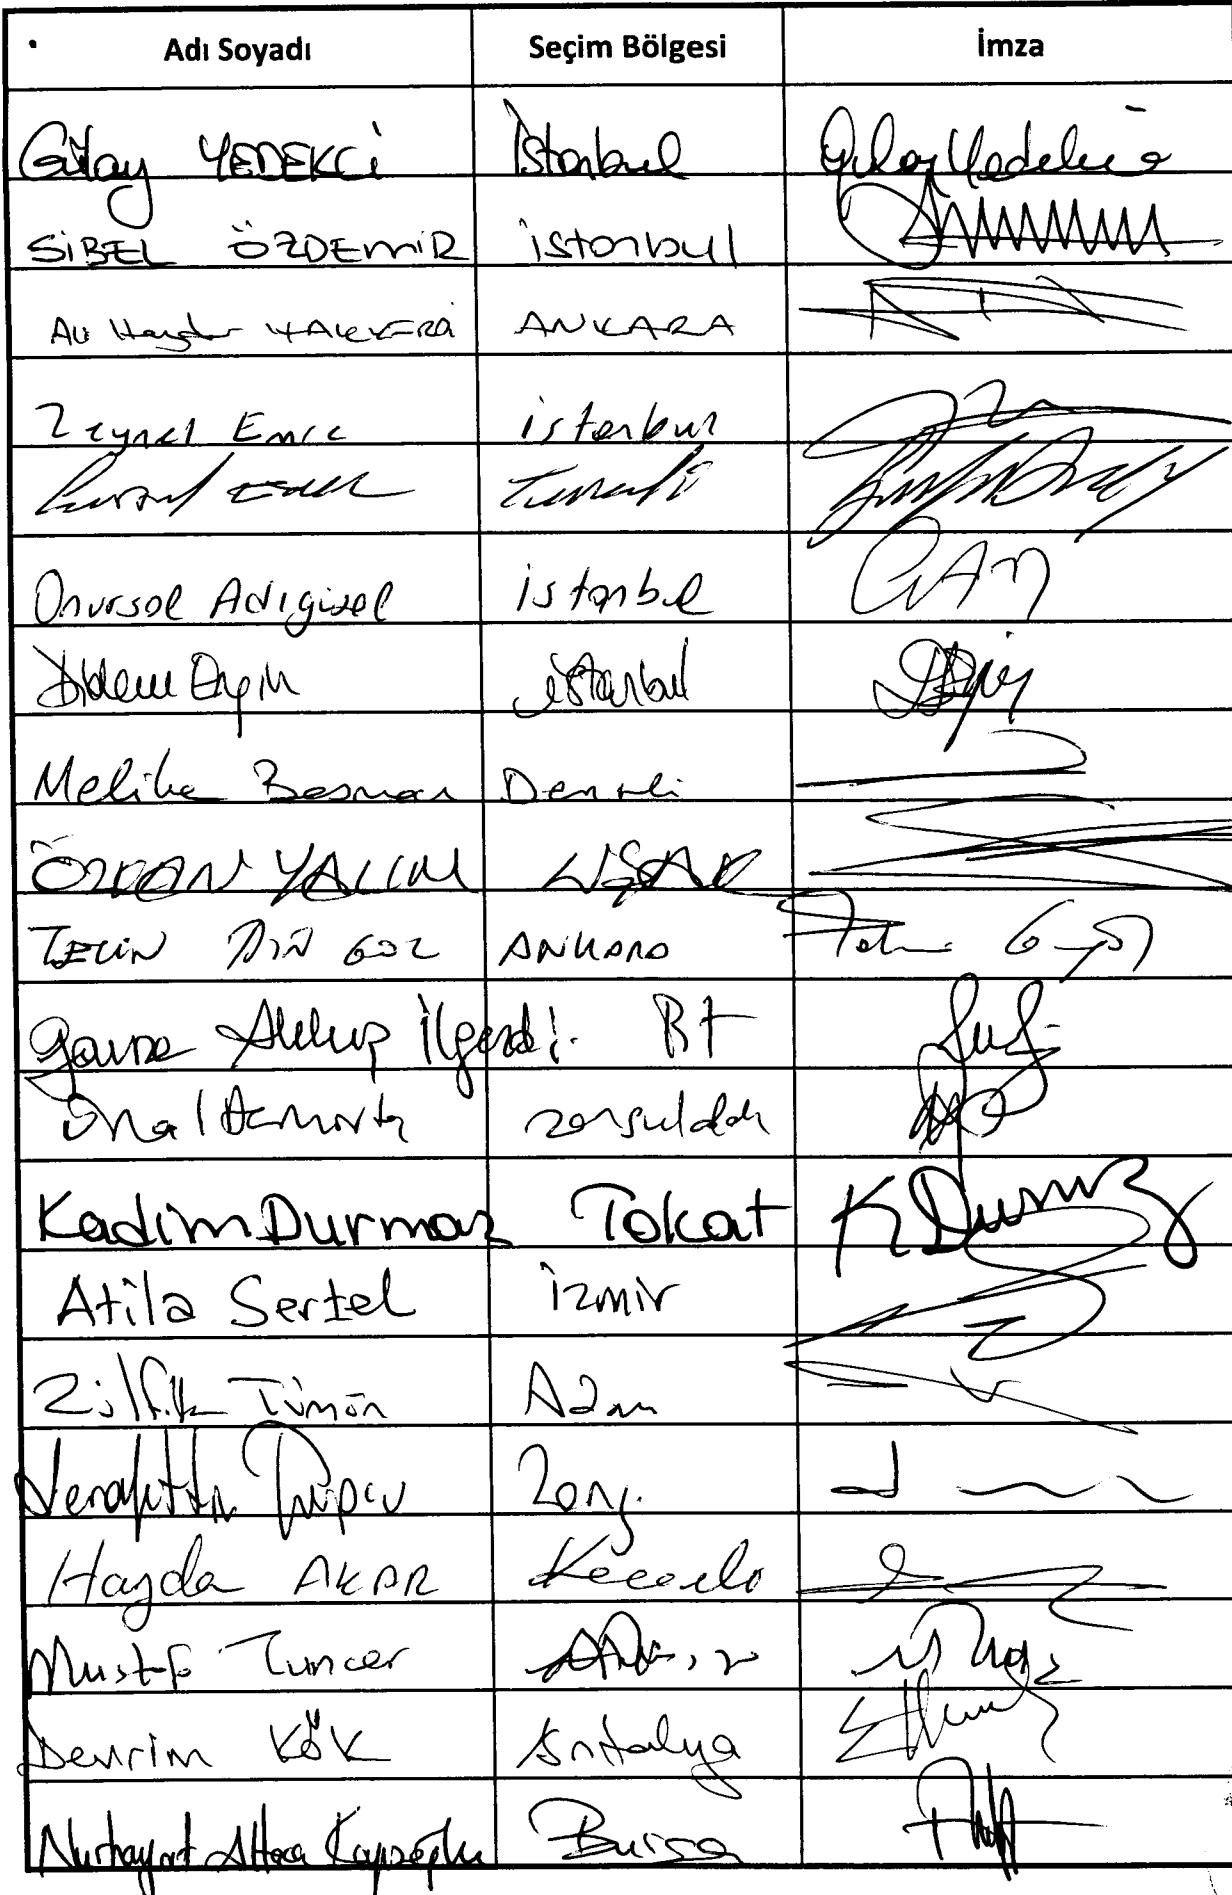 Adı Soyadı Seçim Bölgesi İmza
Gülay YEDEKCİ İstanbul Gülay Yedekci
SİBEL ÖZDEMİR İstanbul
Ali Haydar HAKVERDİ ANKARA
Zeynel Emre İstanbul
Gürsel EROL Tunceli
Onursal Adıgüzel İstanbul
Didem Engin İstanbul
Melike Basmacı Denizli
ÖZKAN YALIM UŞAK
TEKİN BİNGÖL ANKARA
Gamze Akkuş İlgezdi İst
Ünal Demirtaş Zonguldak
Kadim Durmaz Tokat K Durmaz
Atila Sertel İzmir
Zülfikar Tümör Adana
Şerafettin Turpcu Zong.
Haydar AKAR Kocaeli
Mustafa Tuncer Amasya
Devrim KÖK Antalya
Nurhayat Altaca Kayışoğlu Bursa